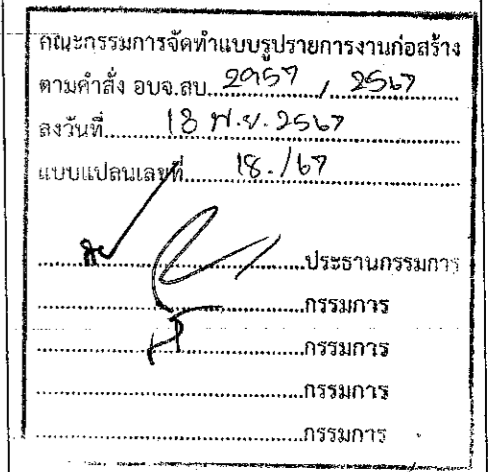 คณะกรรมการจัดทำแบบรูปรายการงานก่อสร้าง
ตามคำสั่ง อบจ.สบ. 2957 / 2567
ลงวันที่ 18 พ.ย. 2567
แบบแปลนเลขที่ 18./67
ประธานกรรมการ
กรรมการ
กรรมการ
กรรมการ
กรรมการ